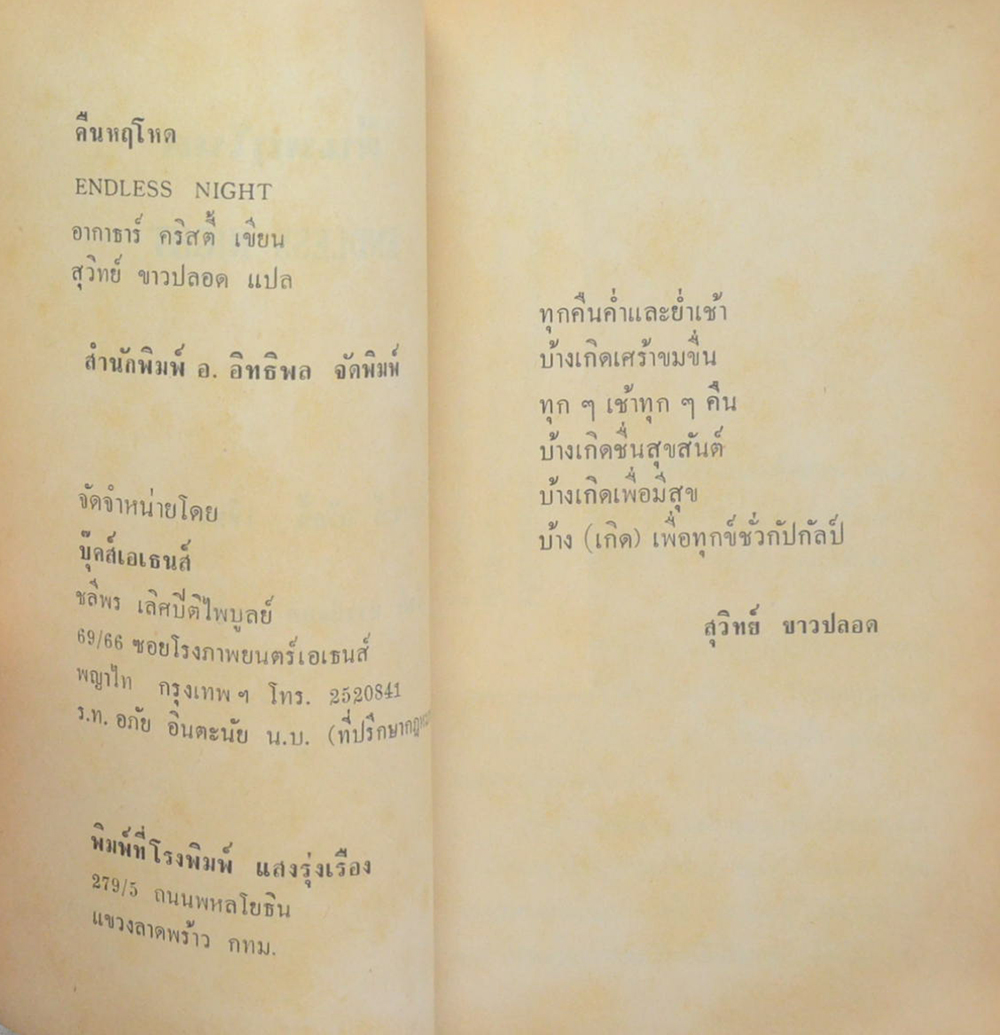 คืนหฤโหด
ENDLESS NIGHT
อากาธาร์ คริสตี้ เขียน
สุวิทย์ ขาวปลอด แปล
สำนักพิมพ์ อ. อิทธิพล จัดพิมพ์
จัดจำหน่ายโดย
บุ๊คส์เอเธนส์
ชลีพร เลิศปีติไพบูลย์
69/66 ซอยโรงภาพยนตร์เอเธนส์
พญาไท กรุงเทพฯ โทร. 2520841
ร.ท. อภัย อินตะนัย น.บ. (ที่ปรึกษา
พิมพ์ที่โรงพิมพ์ แสงรุ่งเรือง
279/5 ถนนพหลโยธิน
แขวงลาดพร้าว กทม.
ทุกคืนค่ำและย่ำเช้า
บ้างเกิดเศร้าขมขื่น
ทุก ๆ เช้าทุก ๆ คืน
บ้างเกิดชื่นสุขสันต์
บ้างเกิดเพื่อมีสุข
บ้าง (เกิด) เพื่อทุกข์ชั่วกัปกัลป์
สุวิทย์ ขาวปลอด